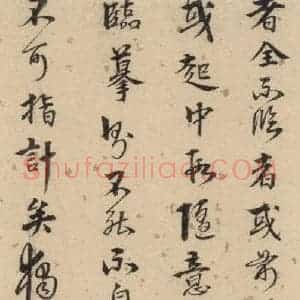 者全不臨者或前
或起中段隨意
臨摹不能不自
不可指計矣獨
Shufaziliao.COM